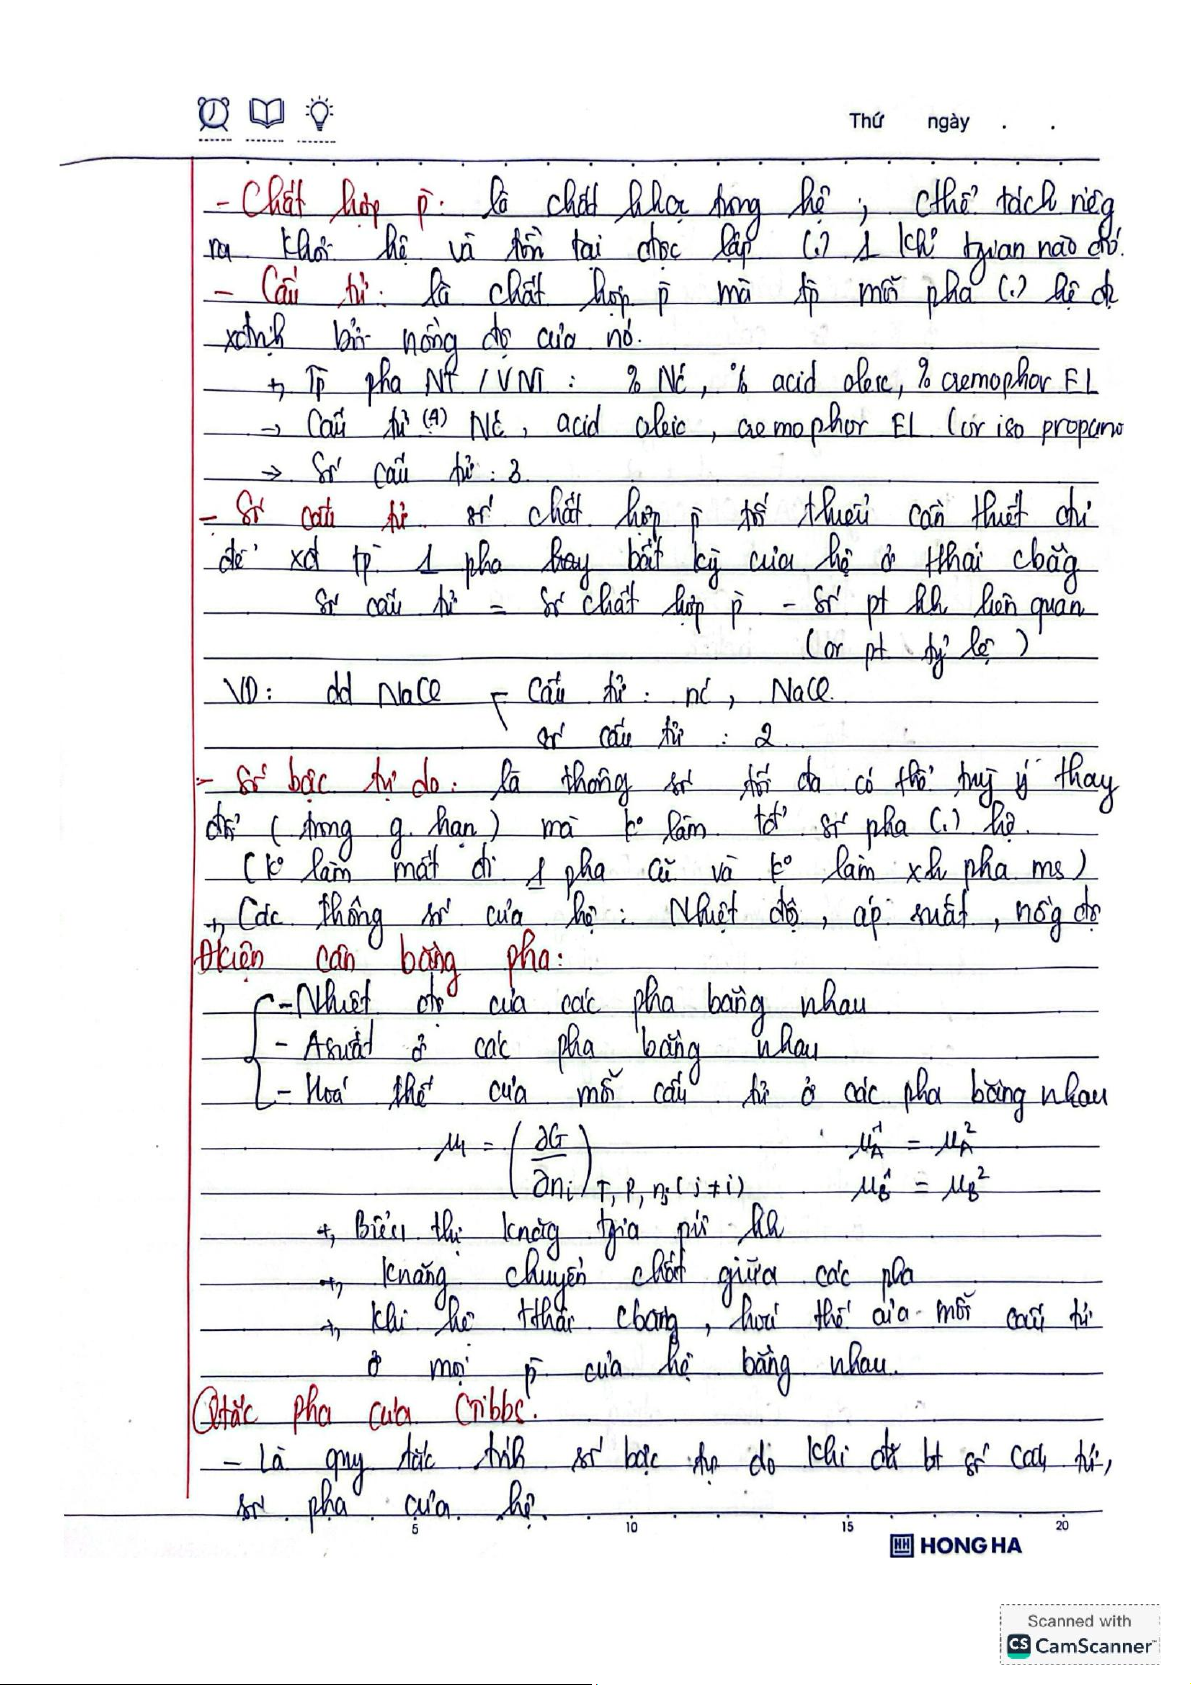 Thứ ngày . .
- Chất hợp p̄: là chất hhọc trong hệ, cthể tách riêg
ra khỏi hệ và tồn tại độc lập (.) 1 khỉ tgian nào đó.
- Cấu tử: là chất hợp p̄ mà tp mỗi pha (.) hệ đc
xđịnh bởi nồng độ của nó.
+, Tp pha NT / VNT: % Nc, % acid oleic, % cremophor EL
→ Cấu tử (4) Nc, acid oleic, cremophor EL (or iso propano
→ Số cấu tử: 3
- Số cấu tử số chất hợp p̄ tối thiểu cần thiết chỉ
để xđ tp 1 pha hay bất kỳ của hệ ở tthái cbằg
Số cấu tử = Số chất hợp p̄ - Số pt hh liên quan
(or pt tỷ lệ)
VD: dd NaCl Cấu tử: nc, NaCl.
số cấu tử: 2
- Số bậc tự do: là thông số tối đa có thể tuỳ ý thay
đổi (trong g. hạn) mà ko làm tđổi số pha (.) hệ.
(ko làm mất đi 1 pha cũ và ko làm xh pha ms)
+, Các thông số của hệ: Nhiệt độ, áp suất, nồg độ
Đkiện cân bằng pha:
- Nhiệt độ của các pha bằng nhau
- Asuất ở các pha bằng nhau
- Hoá thế của mỗi cấu tử ở các pha bằng nhau
μi = (∂G/∂ni)T, P, nj (j≠i) μA¹ = μA²
μB¹ = μB²
+, Biểu thị knăg tgia pứ hh
+, knăng chuyển chất giữa các pha
+, khi hệ tthái cbằng, hoá thế của mỗi cấu tử
ở mọi p̄ của hệ bằng nhau.
Qtắc pha của Gibbs:
- Là quy tắc tính số bậc tự do khi đã bt số cấu tử,
số pha của hệ.
5 10 15 20
HH HONG HA
Scanned with
CS CamScanner